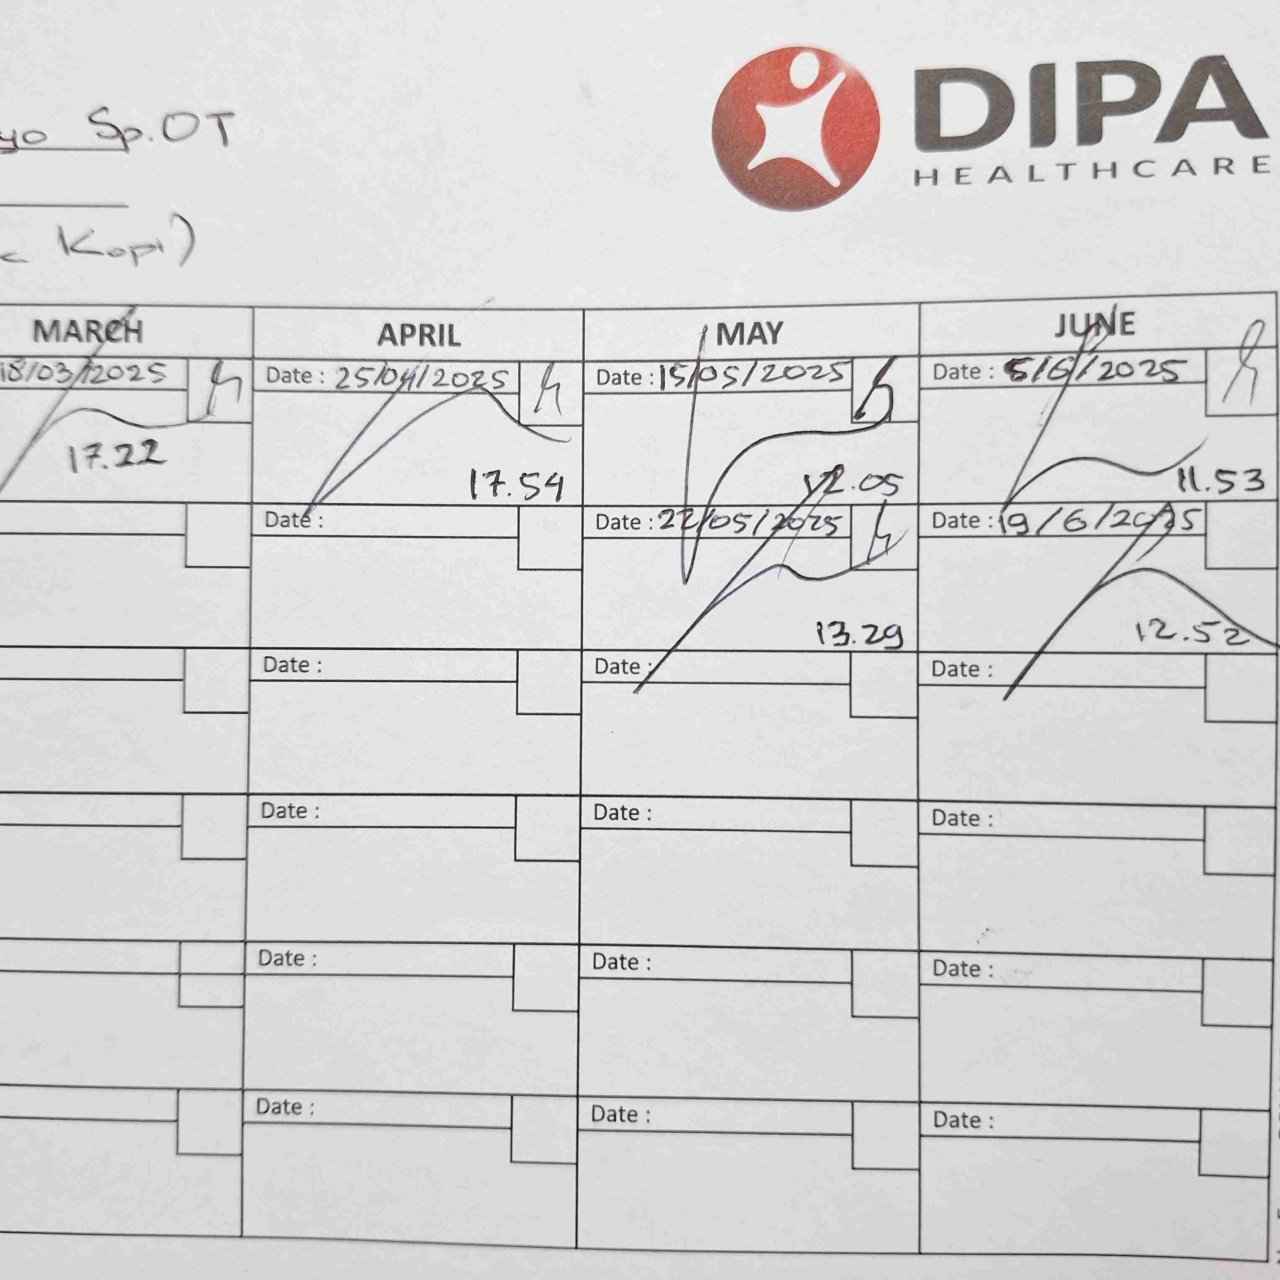 DIPA
HEALTHCARE
yo Sp.OT
Kopi)
MARCH APRIL MAY JUNE
18/03/2025 Date : 25/04/2025 Date : 15/05/2025 Date : 5/6/2025
17.22 17.54 12.05 11.53
Date : Date : 22/05/2025 Date : 19/6/2025
13.29 12.52
Date : Date : Date :
Date : Date : Date :
Date : Date : Date :
Date : Date : Date :